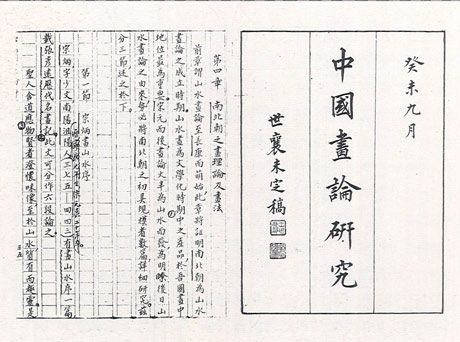 癸未九月
中國畫論研究
世襄未定稿
第四章 南北朝之畫理論及畫法
前章謂山水畫論至長康而萌始此章將証明南北朝為山水
畫論之成立時期山水畫為文學化時期中之產品於吾國畫中
地位最為重要宋元而後畫論大半為山水而發為明暸後日山
水畫論之由來勢必將南北朝之初具規模者數篇詳細研究茲
分三節述之於下
第一節 宗炳畫山水序
宗炳字少文南陽涅陽人三七五—四四三有畫山水序一篇
載張彥遠歷代名畫記此文可分作六段論之
聖人含道應物賢者澄懷味像至於山水質有而趣靈是
三五